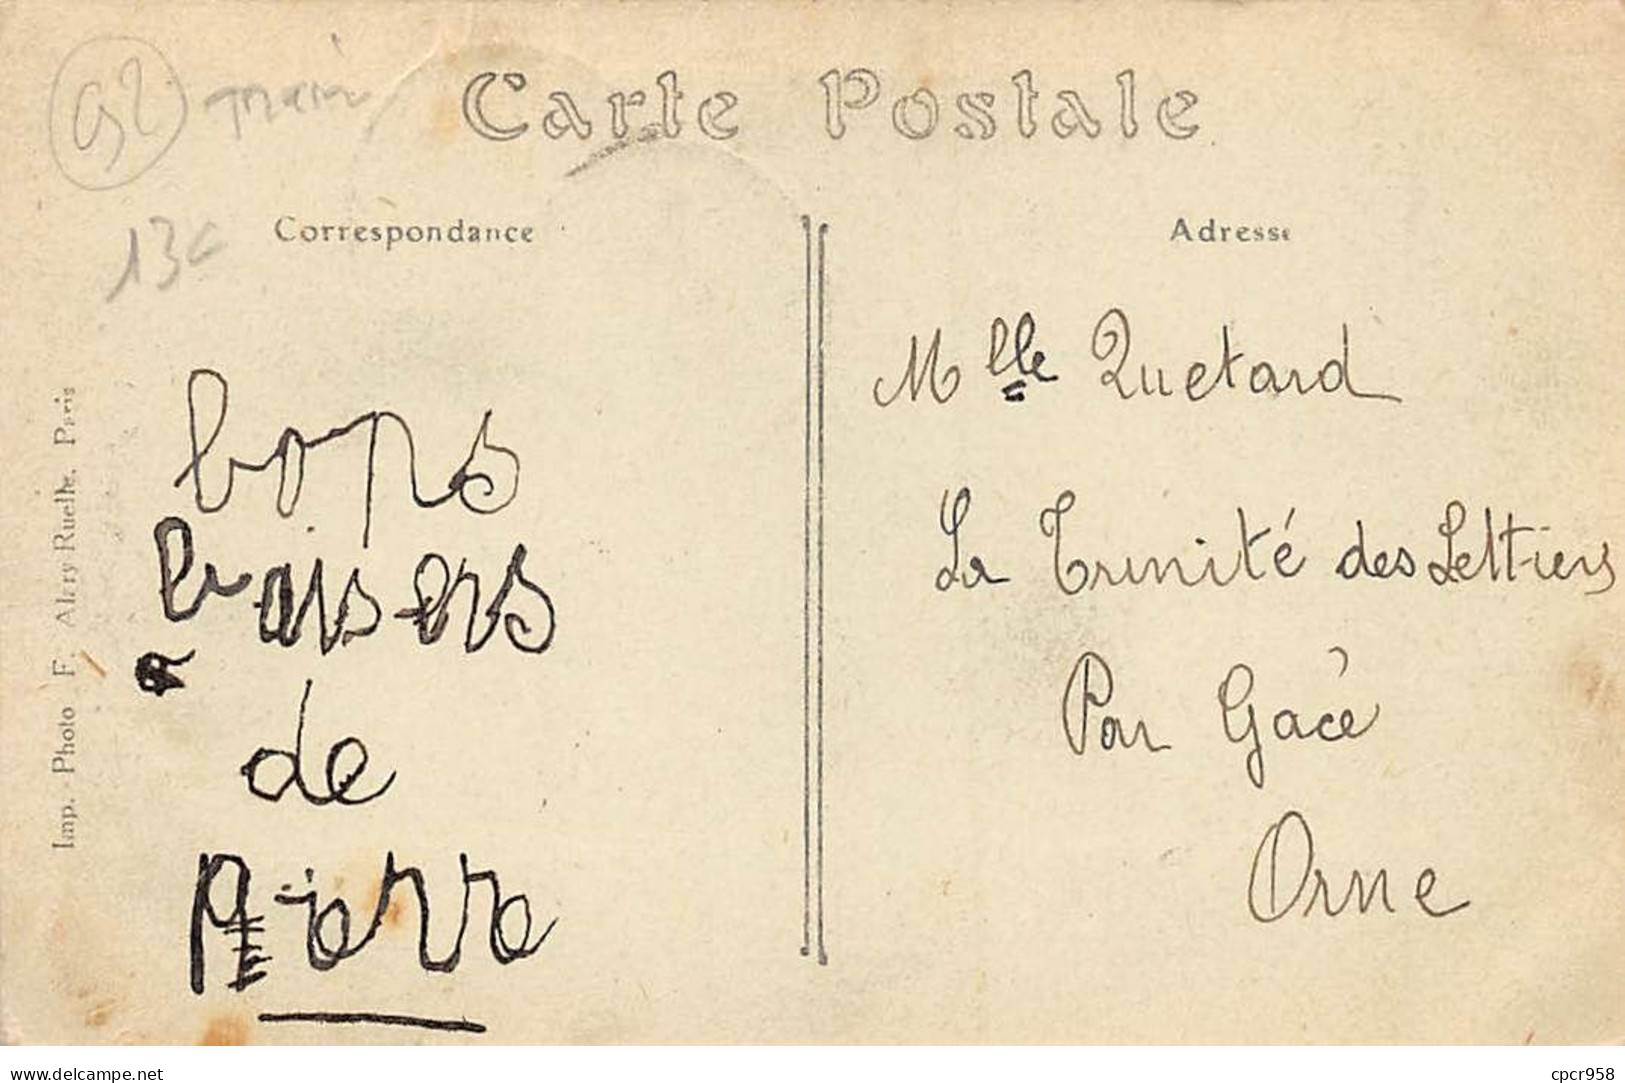 92 train
Carte Postale
13c
Correspondance
Adresse
bons
baisers
de
Pierre
Mlle Quetard
La Trinité des Lettiers
Par Gacé
Orne
Imp. - Photo F. Alary-Ruelle, Paris
www.delcampe.net
cpcr958